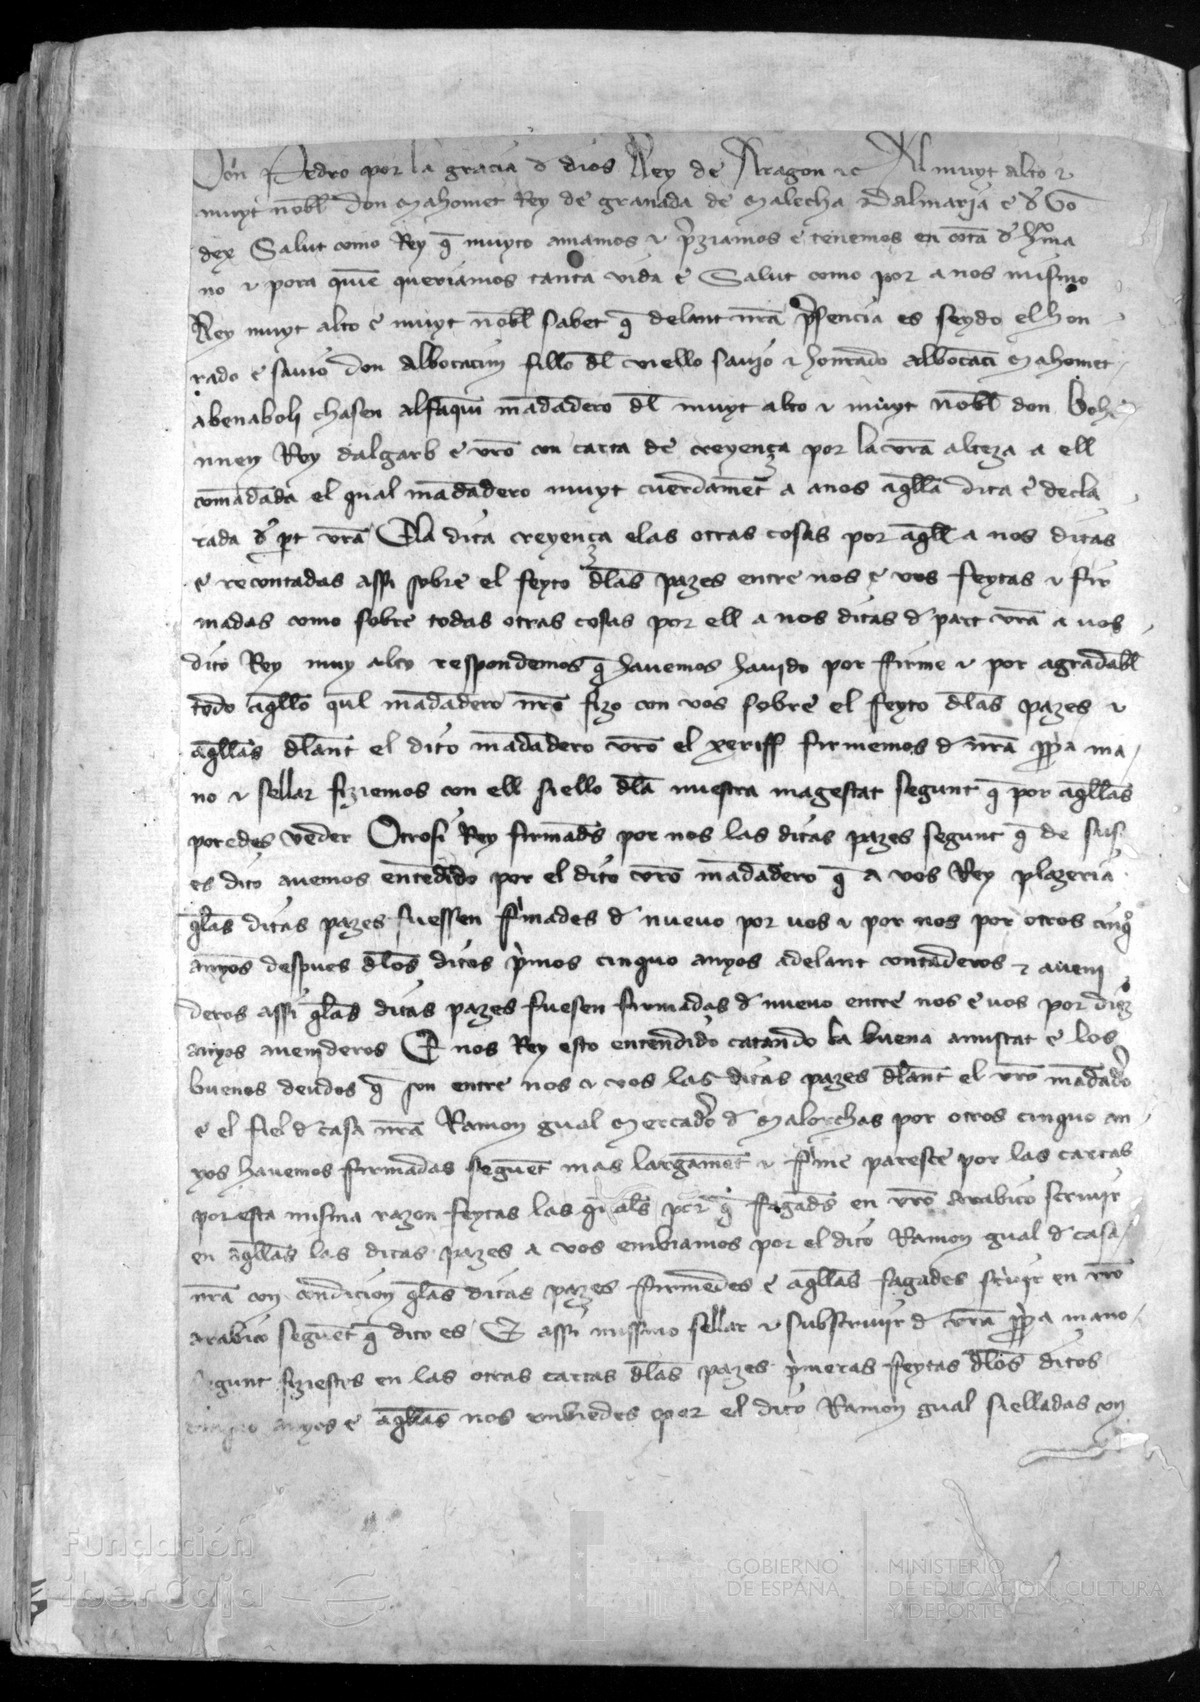 Don Pedro por la gracia d dios Rey de Aragon &c Al muyt alto &
muyt nobl don Mahomet Rey de granada de Malecha Dalmaria e d Go
dex Salut como Rey q muyto amamos & preziamos e tenemos en cota d hrma
no & pora quie queriamos tanta vida e Salut como por a nos mismo
Rey muyt alto e muyt nobl sabet q delant nra presencia es seydo el hon
rado e savio don albocacim fillo dl viello savio & hontado albocaci Mahomet
abenaboli chasen alfaqui madadero dl muyt alto & muyt nobl don Bohe
nnen Rey dalgarb e vro con carta de creyença por la vra alteza a ell
comadada el qual madadero muyt cuerdamet a anos aqlla dita e decla
rada d pt vra E la dita creyença e las otras cosas por aqll a nos ditas
e recontadas assi sobre el feyto dlas pazes entre nos e vos feytas & fir
madas como sobre todas otras cosas por ell a nos ditas d part vra a vos
dito Rey muy alto respondemos q havemos havido por firme & por agradabl
todo aqllo qul madadero nro fizo con vos sobre el feyto dlas pazes &
aqllas dlant el dito madadero vro el xeriff firmemos d nra ppa ma
no & sellar fiziemos con ell siello dla nuestra magestat segunt q por aqllas
poredes veder Otrosi Rey firmads por nos las ditas pazes segunt q de sus
es dito avemos entedido por el dito vro madadero q a vos Rey plazeria
qlas ditas pazes fuessen fimades d nuevo por vos & por nos por otros cinqo
anyos despues dlos ditos pimos cinquo anyos adelant contaderos & aveni
deros assi qlas ditas pazes fuesen firmadas d nuevo entre nos e vos por diez
anyos avenideros E nos Rey esto entendido catando la buena amistat e los
buenos deudos q son entre nos & vos las ditas pazes dlant el vro madadero
e el fiel d casa nra Ramon gual Mercadero d Malorchas por otros cinquo an
yos havemos firmadas seguet mas largamet & fime paresce por las cartas
por esta misma razon feytas las quals por q fagads en vro arabico scrivir
en aqllas las ditas pazes a vos embiamos por el dito Ramon gual d casa
nra con condicion qlas ditas pazes firmedes e aqllas fagades scrivir en vro
arabico seguet q dito es E assi missmo sellar & subscrivir d vra ppa mano
segunt fiziestes en las otras cartas dlas pazes pimeras feytas dlos ditos
cinquo anyos e aqllas nos embiedes por el dito Ramon gual sielladas con
Fundación
iberCaja
GOBIERNO
DE ESPAÑA
MINISTERIO
DE EDUCACIÓN, CULTURA
Y DEPORTE